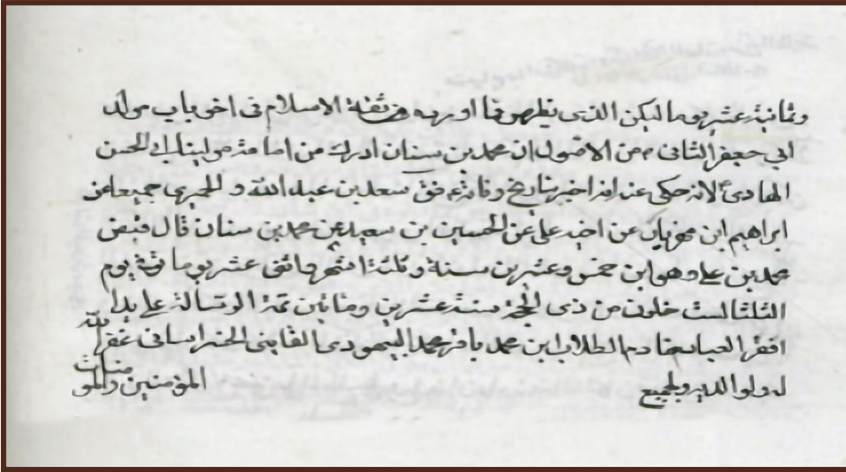 وثمانية عشر يوما ليكن الذي يظهر مما اورده ثقة الاسلام في اخر باب مولد
ابي جعفر الثاني ع من الاصول ان محمد بن سنان ادرك من امامة مولينا ابي الحسن
الهادي ع لانه حكى عنه انه اخبر بتاريخ وفاته ع ففي سعد بن عبد الله والحميري جميعا عن
ابراهيم ابن مهزيار عن اخيه علي عن الحسين بن سعيد عن محمد بن سنان قال قبض
محمد بن علي وهو ابن خمس وعشرين سنة وثلثة اشهر واثنى عشر يوما توفى يوم
الثلثا لست خلون من ذى الحجة سنة عشرين ومائتين تمة الرسالة على يد
افقر العباد خادم الطلاب ابن محمد باقر محمد القاينى الخراسانى غفر الله
له ولوالديه ولجميع المؤمنين والمؤمنات